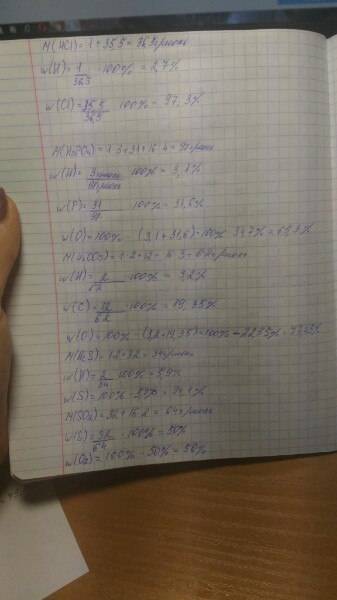 M(HCl) = 1 + 35,5 = 36,5 г/моль
w(H) = 1/36,5 · 100% = 2,7%
w(Cl) = 35,5/36,5 · 100% = 97,3%
M(H₃PO₄) = 1·3+31+16·4 = 98 г/моль
w(H) = 3 г/моль/98 г/моль · 100% = 3,1%
w(P) = 31/98 · 100% = 31,6%
w(O) = 100% - (3,1+31,6) = 100% - 34,7% = 65,3%
M(H₂CO₃) = 1·2+12+16·3 = 62 г/моль
w(H) = 2/62 · 100% = 3,2%
w(C) = 12/62 · 100% = 19,35%
w(O) = 100% - (3,2+19,35) = 100% -
M(H₂S) = 1·2+32 = 34 г/моль
w(H) = 2/34 · 100% = 5,9%
w(S) = 100% - 5,9% = 94,1%
M(SO₂) = 32+16·2 = 64 г/моль
w(S) = 32/64 · 100% = 50%
w(O₂) = 100% - 50% = 50%